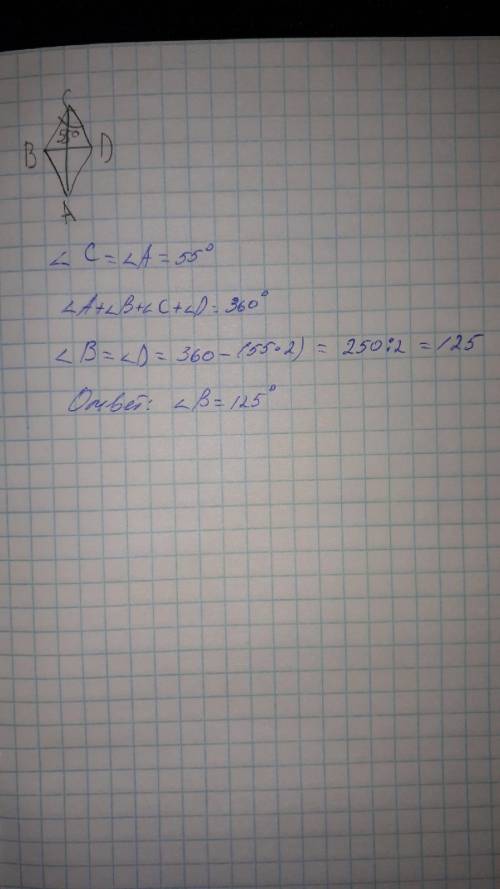 C
55°
B D
A
∠ C = ∠A = 55°
∠A+∠B+∠C+∠D = 360°
∠B = ∠D = 360 - (55·2) = 250:2 = 125
Ответ: ∠B = 125°